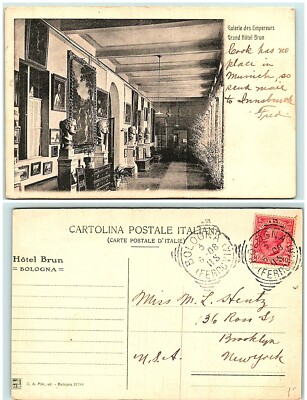 Galerie des Empereurs
Grand Hôtel Brun
Cook has no
place in
Munich, so
send mail
to Innsbruck
Fred
CARTOLINA POSTALE ITALIANA
(CARTE POSTALE D'ITALIE)
Hôtel Brun
BOLOGNA
BOLOGNA
(FERROVIA)
BOLOGNA
(FERROVIA)
Miss M. L. Stentz
136 Ross St
Brooklyn
U.S.A. New York